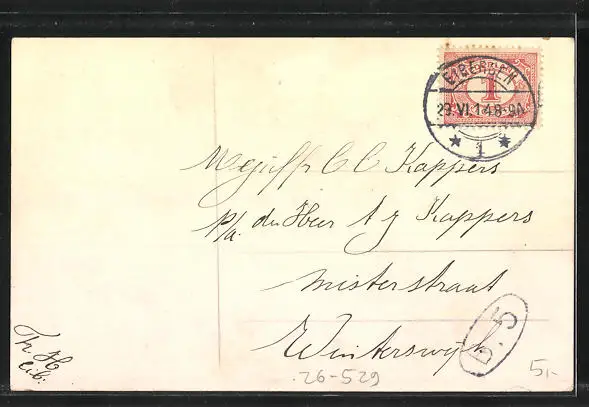 EIBERGEN
1
29.VI.14.8-9A
1
Mejuffr C C Kappers
p/a. den Heer A J Kappers
Misterstraat
Winterswijk
b. 5
Th. H
Eib:
26-529
5,-